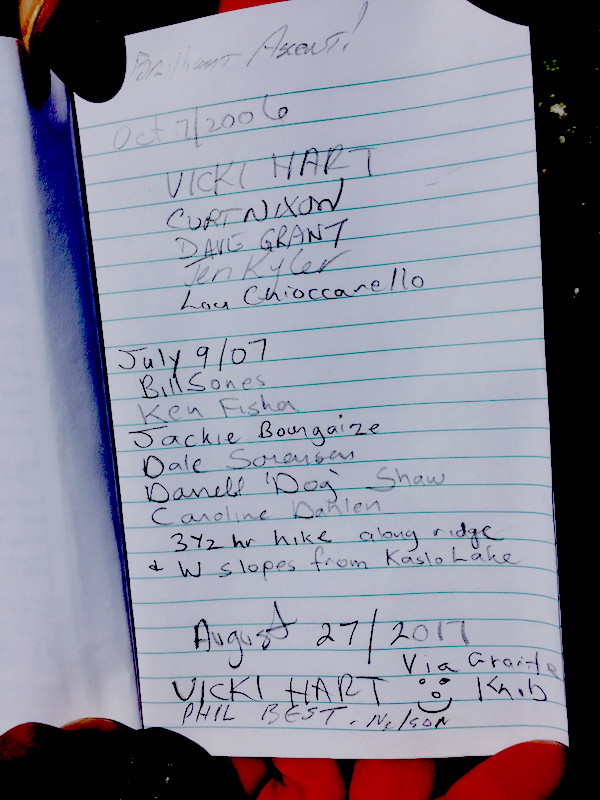 Brilliant Ascent!
Oct 7/2006
VICKI HART
CURT NIXON
DAVE GRANT
Jen Kyler
Lou Chioccarello
July 9/07
Bill Sones
Ken Fisha
Jackie Boungaize
Dale Sorensen
Darrell 'Dog' Shaw
Caroline Dahlen
3 1/2 hr hike along ridge
& W slopes from Kaslo Lake
August 27/2017
Via Graite
VICKI HART Knob
PHIL BEST. Nelson